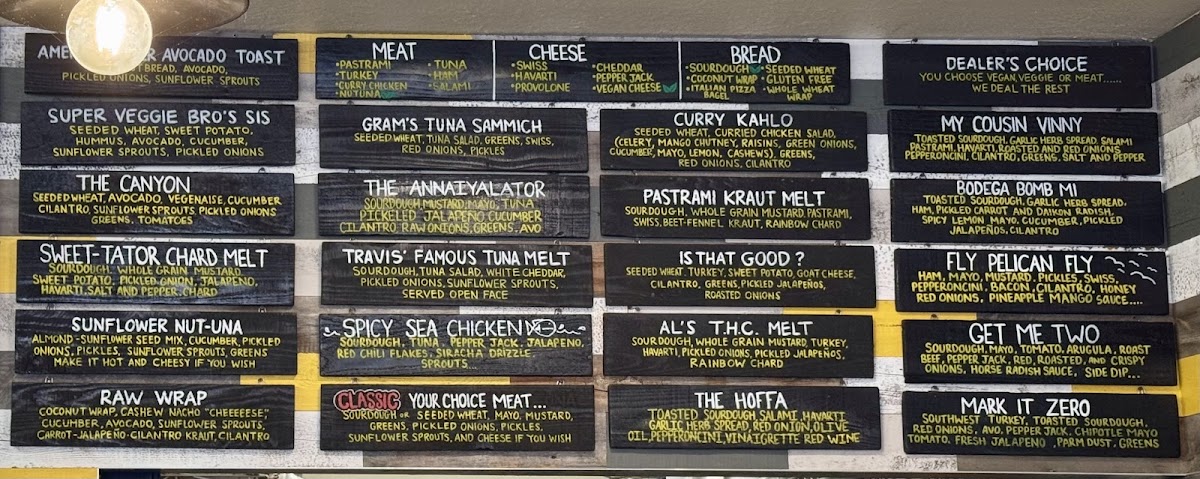 AME ER AVOCADO TOAST
BREAD, AVOCADO,
PICKLED ONIONS, SUNFLOWER SPROUTS
SUPER VEGGIE BRO'S SIS
SEEDED WHEAT, SWEET POTATO,
HUMMUS, AVOCADO, CUCUMBER,
SUNFLOWER SPROUTS, PICKLED ONIONS
THE CANYON
SEEDED WHEAT, AVOCADO, VEGENAISE, CUCUMBER
CILANTRO, SUNFLOWER SPROUTS, PICKLED ONIONS
GREENS, TOMATOES
SWEET-TATOR CHARD MELT
SOURDOUGH, WHOLE GRAIN MUSTARD,
SWEET POTATO, PICKLED ONION, JALAPEÑO,
HAVARTI, SALT AND PEPPER, CHARD
SUNFLOWER NUT-UNA
ALMOND-SUNFLOWER SEED MIX, CUCUMBER, PICKLED
ONIONS, PICKLES, SUNFLOWER SPROUTS, GREENS
MAKE IT HOT AND CHEESY IF YOU WISH
RAW WRAP
COCONUT WRAP, CASHEW NACHO "CHEEEEESE,"
CUCUMBER, AVOCADO, SUNFLOWER SPROUTS,
CARROT-JALAPEÑO-CILANTRO KRAUT, CILANTRO
MEAT
•PASTRAMI •TUNA
•TURKEY •HAM
•CURRY CHICKEN •SALAMI
•NUTUNA
CHEESE
•SWISS •CHEDDAR
•HAVARTI •PEPPER JACK
•PROVOLONE •VEGAN CHEESE
BREAD
•SOURDOUGH •SEEDED WHEAT
•COCONUT WRAP •GLUTEN FREE
•ITALIAN PIZZA •WHOLE WHEAT
BAGEL WRAP
GRAM'S TUNA SAMMICH
SEEDED WHEAT, TUNA SALAD, GREENS, SWISS,
RED ONIONS, PICKLES
THE ANNAIYALATOR
SOURDOUGH, MUSTARD, MAYO, TUNA
PICKELED JALAPEÑO, CUCUMBER
CILANTRO, RAW ONIONS, GREENS, AVO
TRAVIS' FAMOUS TUNA MELT
SOURDOUGH, TUNA SALAD, WHITE CHEDDAR,
PICKLED ONIONS, SUNFLOWER SPROUTS,
SERVED OPEN FACE
SPICY SEA CHICKEN
SOURDOUGH, TUNA, PEPPER JACK, JALAPENO,
RED CHILI FLAKES, SIRACHA DRIZZLE,
SPROUTS...
CLASSIC YOUR CHOICE MEAT...
SOURDOUGH OR SEEDED WHEAT, MAYO, MUSTARD,
GREENS, PICKLED ONIONS, PICKLES,
SUNFLOWER SPROUTS, AND CHEESE IF YOU WISH
CURRY KAHLO
SEEDED WHEAT, CURRIED CHICKEN SALAD,
(CELERY, MANGO CHUTNEY, RAISINS, GREEN ONIONS,
CUCUMBER, MAYO, LEMON, CASHEWS), GREENS,
RED ONIONS, CILANTRO
PASTRAMI KRAUT MELT
SOURDOUGH, WHOLE GRAIN MUSTARD, PASTRAMI,
SWISS, BEET-FENNEL KRAUT, RAINBOW CHARD
IS THAT GOOD?
SEEDED WHEAT, TURKEY, SWEET POTATO, GOAT CHEESE,
CILANTRO, GREENS, PICKLED JALAPEÑOS,
ROASTED ONIONS
AL'S T.H.C. MELT
SOURDOUGH, WHOLE GRAIN MUSTARD, TURKEY,
HAVARTI, PICKLED ONIONS, PICKLED JALAPEÑOS,
RAINBOW CHARD
THE HOFFA
TOASTED SOURDOUGH, SALAMI, HAVARTI
GARLIC HERB SPREAD, RED ONION, OLIVE
OIL, PEPPERONCINI, VINAIGRETTE RED WINE
DEALER'S CHOICE
YOU CHOOSE VEGAN, VEGGIE OR MEAT......
WE DEAL THE REST
MY COUSIN VINNY
TOASTED SOURDOUGH, GARLIC HERB SPREAD, SALAMI
PASTRAMI, HAVARTI, ROASTED AND RED ONIONS,
PEPPERONCINI, CILANTRO, GREENS, SALT AND PEPPER
BODEGA BOMB MI
TOASTED SOURDOUGH, GARLIC HERB SPREAD,
HAM, PICKLED CARROT AND DAIKON RADISH,
SPICY LEMON MAYO, CUCUMBER, PICKLED
JALAPEÑOS, CILANTRO
FLY PELICAN FLY
HAM, MAYO, MUSTARD, PICKLES, SWISS,
PEPPERONCINI, BACON, CILANTRO, HONEY
RED ONIONS, PINEAPPLE MANGO SAUCE....
GET ME TWO
SOURDOUGH, MAYO, TOMATO, ARUGULA, ROAST
BEEF, PEPPER JACK, RED, ROASTED, AND CRISPY
ONIONS, HORSE RADISH SAUCE, SIDE DIP...
MARK IT ZERO
SOUTHWEST TURKEY, TOASTED SOURDOUGH,
RED ONIONS, AVO, PEPPER JACK, CHIPOTLE MAYO
TOMATO, FRESH JALAPENO, PARM DUST, GREENS